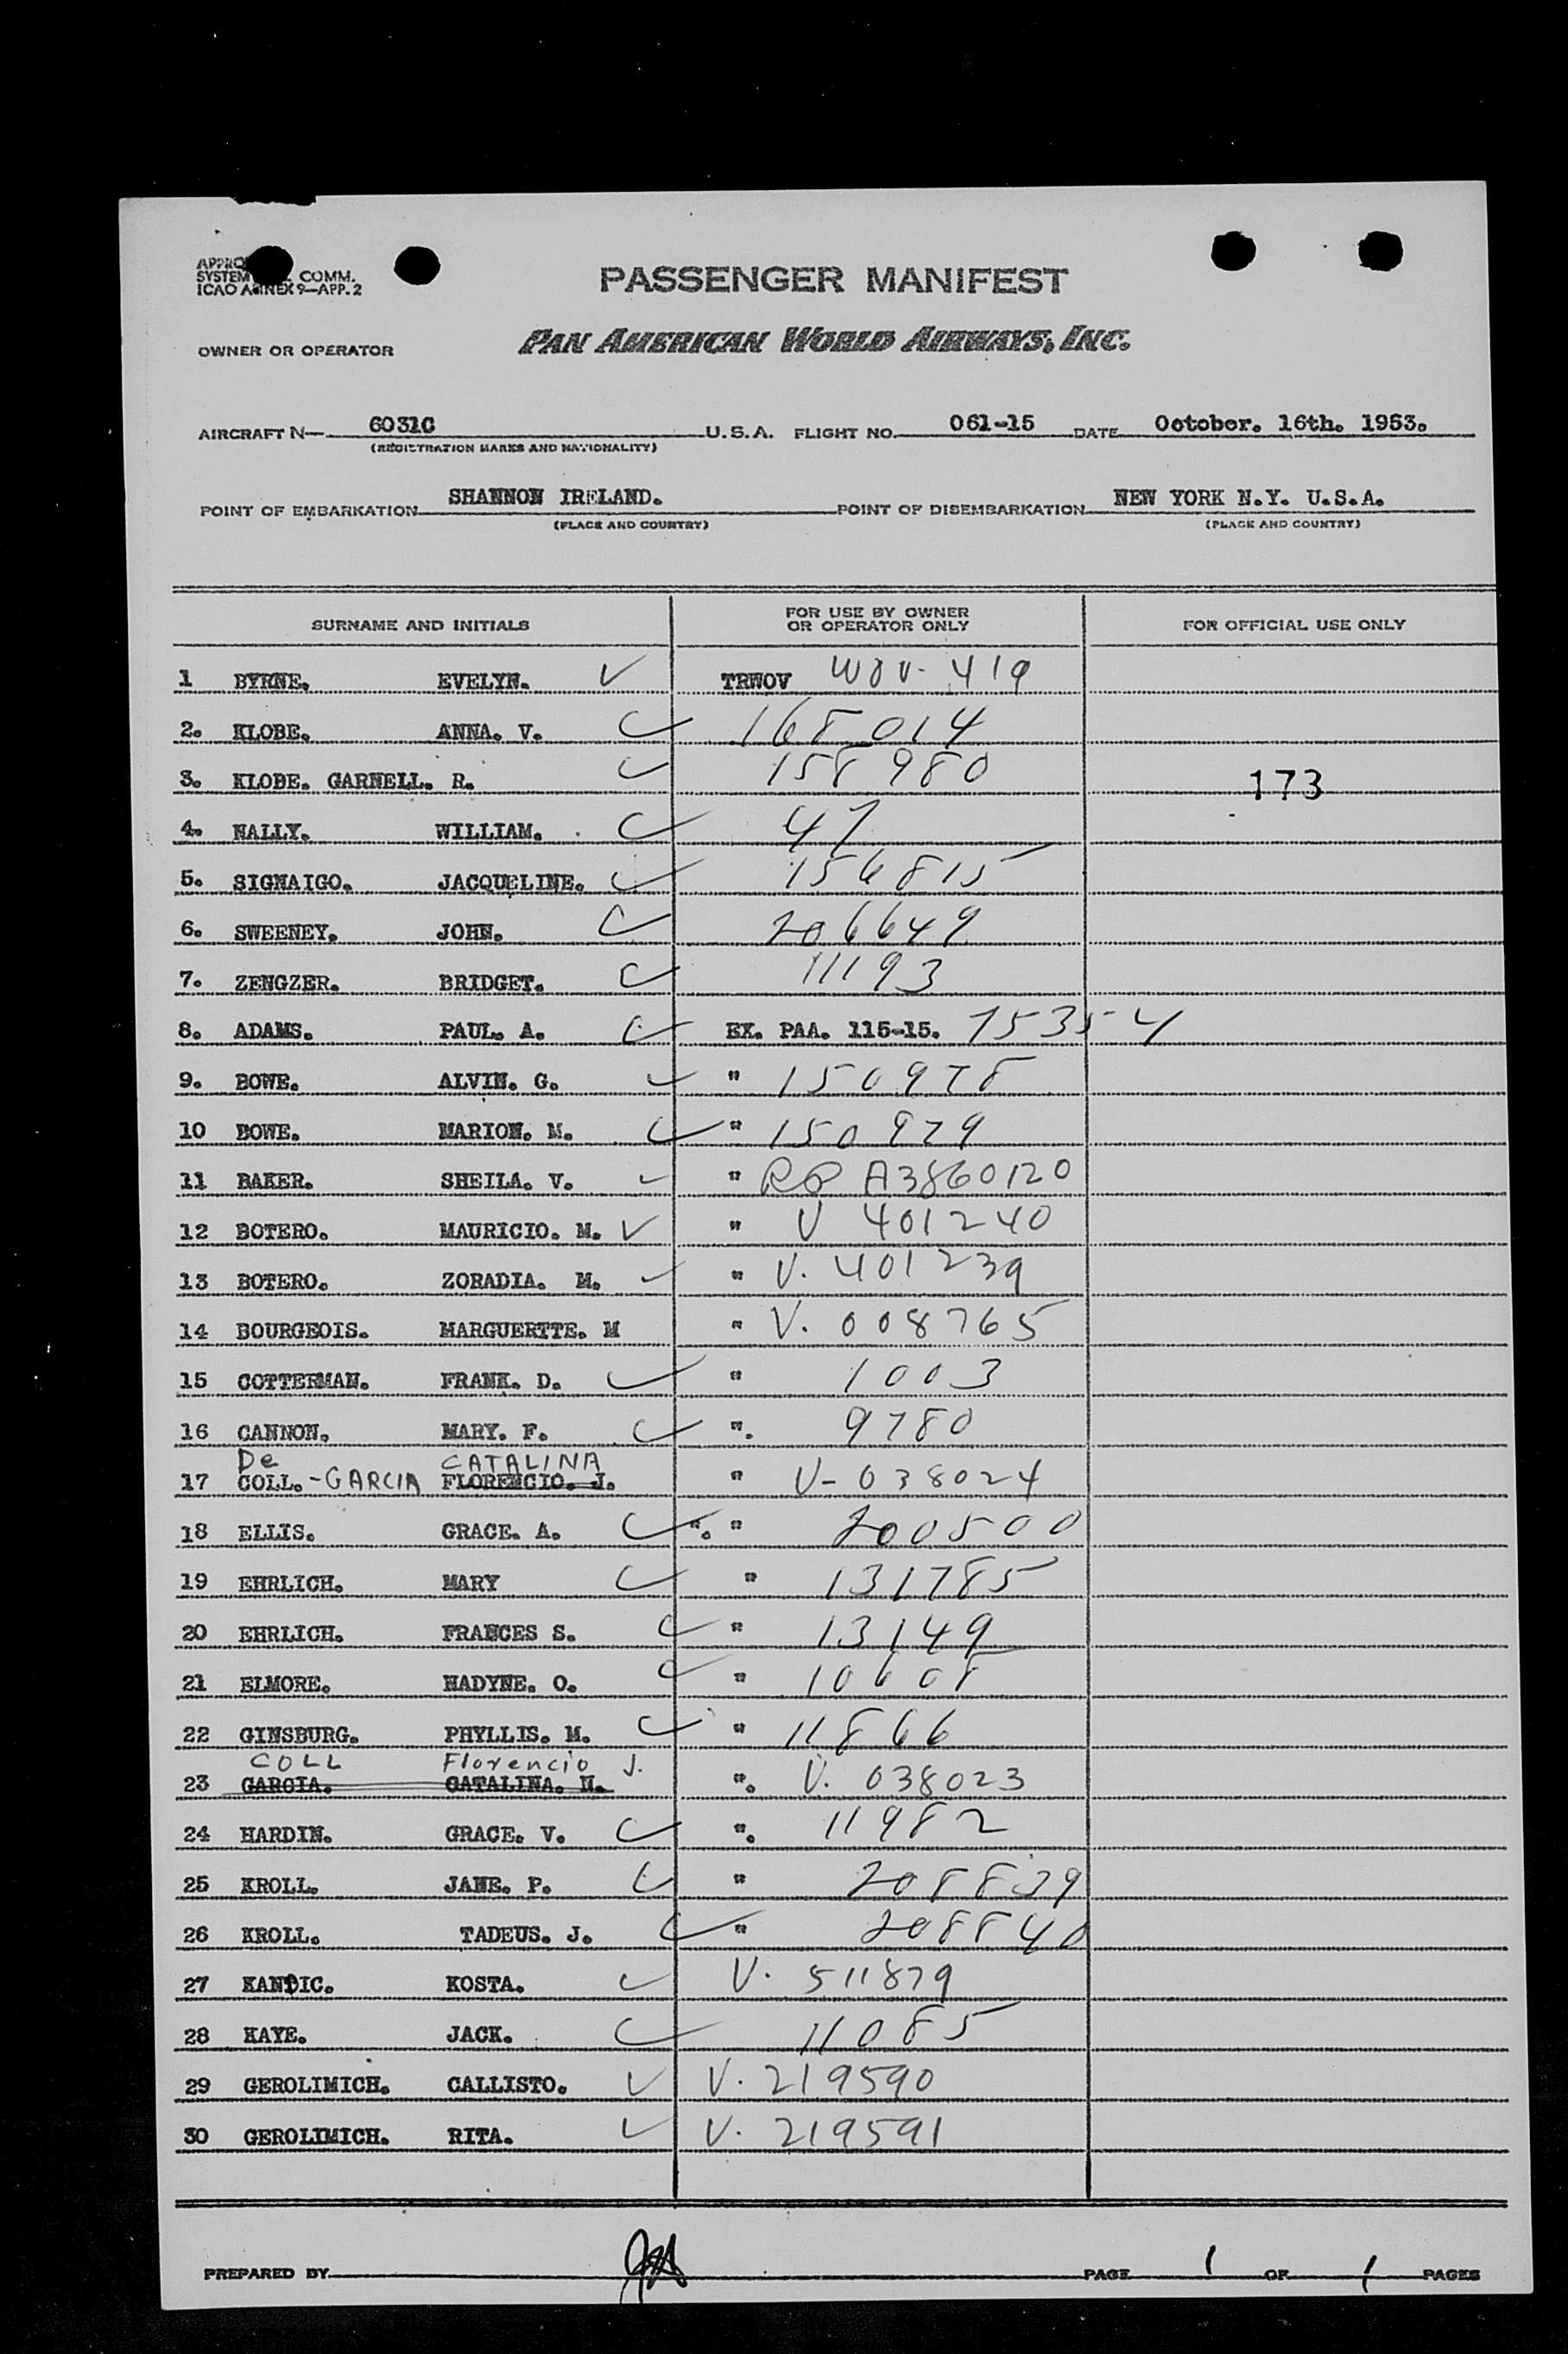 APPRO
SYSTEM COMM.
ICAO ANNEX 9—APP. 2
PASSENGER MANIFEST
OWNER OR OPERATOR PAN AMERICAN WORLD AIRWAYS, INC.
AIRCRAFT N— 6031C U.S.A. FLIGHT NO. 061-15 DATE October. 16th. 1953.
(REGISTRATION MARKS AND NATIONALITY)
POINT OF EMBARKATION SHANNON IRELAND. POINT OF DISEMBARKATION NEW YORK N.Y. U.S.A.
(PLACE AND COUNTRY) (PLACE AND COUNTRY)
SURNAME AND INITIALS FOR USE BY OWNER OR OPERATOR ONLY FOR OFFICIAL USE ONLY
1 BYRNE. EVELYN. TRWOV 419
2. KLOBE. ANNA. V. 168014
3. KLOBE. GARNELL. R. 158980 173
4. NALLY. WILLIAM. 47
5. SIGNAIGO. JACQUELINE. 156815
6. SWEENEY. JOHN. 206649
7. ZENGZER. BRIDGET. 11193
8. ADAMS. PAUL. A. EX. PAA. 115-15. 75354
9. BOWE. ALVIN. G. " 150978
10 BOWE. MARION. M. " 150979
11 BAKER. SHEILA. V. " RP A3860120
12 BOTERO. MAURICIO. M. " V 401240
13 BOTERO. ZORADIA. M. " V. 401239
14 BOURGEOIS. MARGUERTTE. M " V. 008765
15 COTTERMAN. FRANK. D. " 1003
16 CANNON. MARY. F. ". 9780
De CATALINA
17 COLL.-GARCIA FLORENCIO. J. " V-038024
18 ELLIS. GRACE. A. ". " 200500
19 EHRLICH. MARY " 131785
20 EHRLICH. FRANCES S. " 13149
21 ELMORE. HADYNE. O. " 10608
22 GINSBURG. PHYLLIS. M. " 11866
COLL Florencio J.
23 GARCIA. CATALINA. N. ". V. 038023
24 HARDIN. GRACE. V. ". 11982
25 KROLL. JANE. P. " 208839
26 KROLL. TADEUS. J. " 208840
27 KANDIC. KOSTA. V. 511879
28 KAYE. JACK. 11085
29 GEROLIMICH. CALLISTO. V. 219590
30 GEROLIMICH. RITA. V. 219591
PREPARED BY PAGE 1 OF 1 PAGES